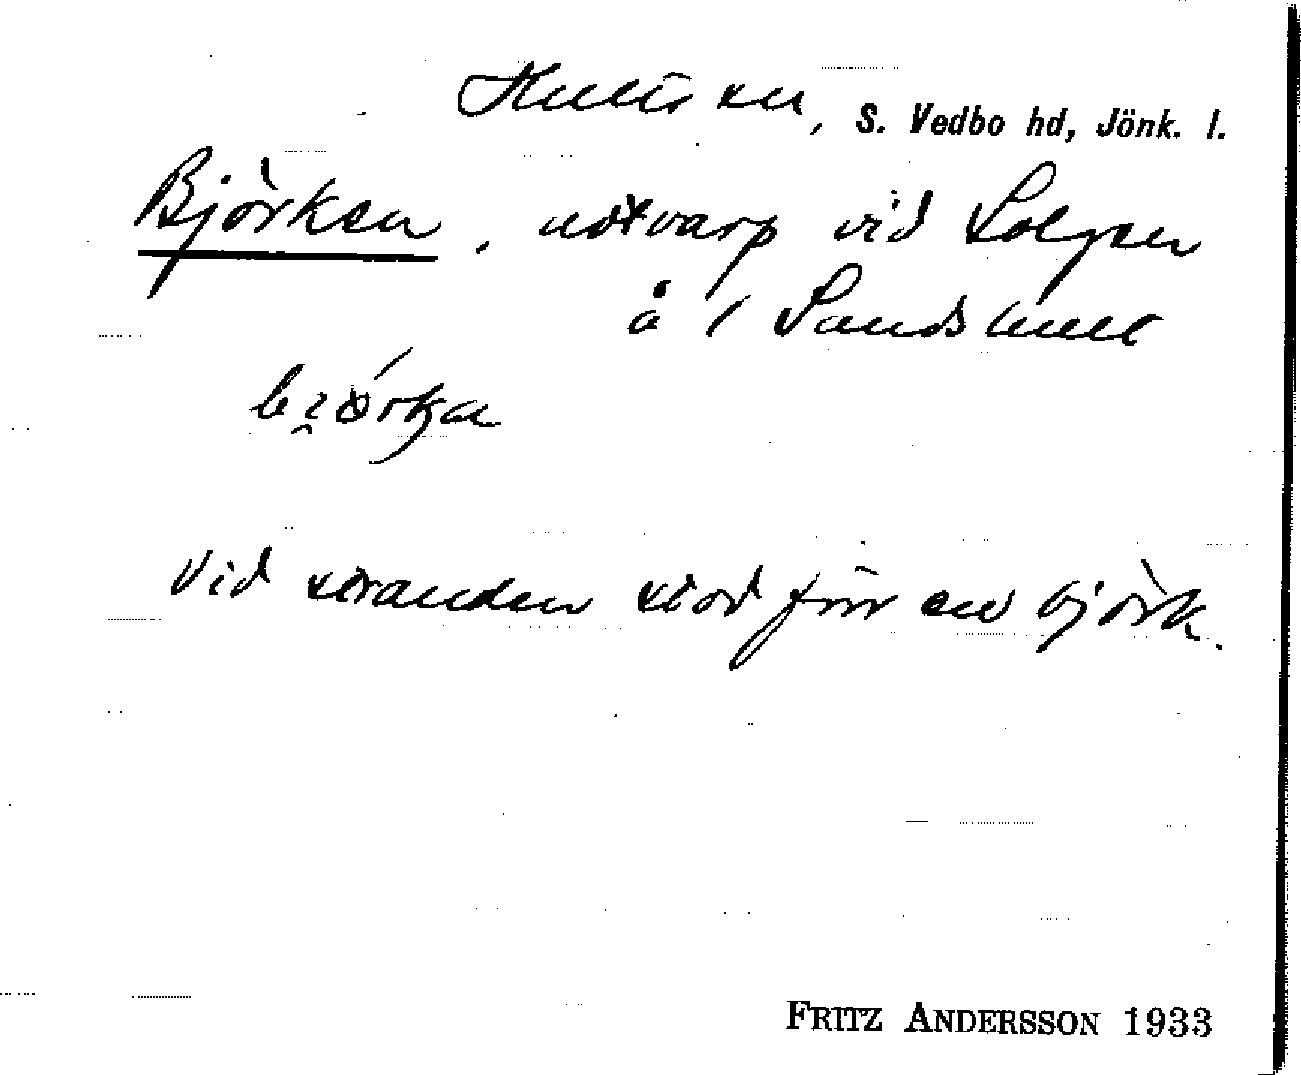 Hullaryd, S. Vedbo hd, Jönk. l.
Björken, notvarp vid Solgen
å / Sandshult
björka
Vid stranden stod förr en björk.
FRITZ ANDERSSON 1933